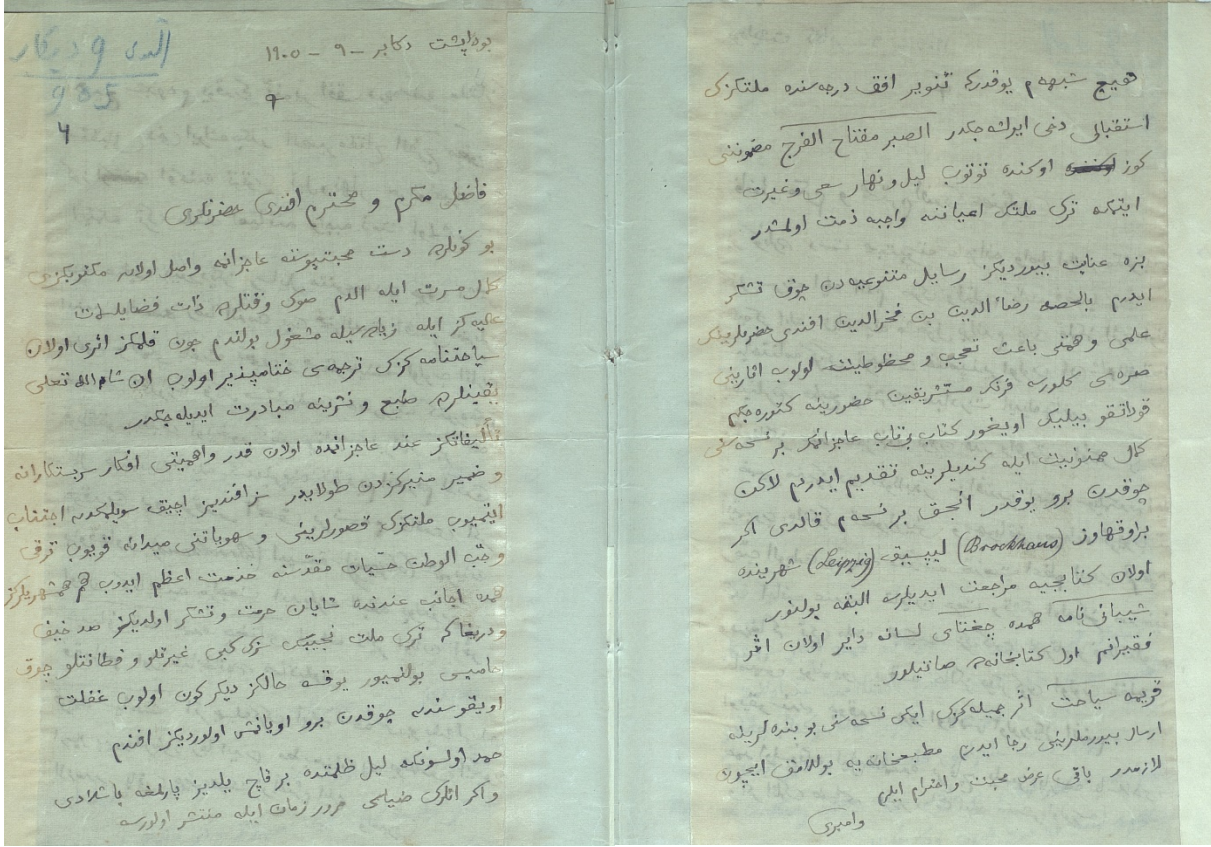 الدی 9 دیکابر
905
بوداپشت دکابر – ٩ – ١٩٠٥
9
4
فاضل مکرم و محترم افندی حضرتلری
بو کونلرده دست محبتپیوستهٔ عاجزانمه واصل اولان مکتوبکزی
کمال مسرت ایله الدم صوک وقتلرده ذات فضایلسمات
عالیه کز ایله زیاده سیله مشغول بولندم چون قلمکز اثری اولان
سیاحتنامه کزک ترجمه سی ختامپذیر اولوب ان شاء الله تعالی
یقینلرده طبع و نشرینه مبادرت ایدیله جکدر
تألیفاتکز عند عاجزانمده اولان قدر واهمیتی افکار سربستکارانه
و ضمیر منیرکزدن طولاییدر سز افندیز اچیق سویلمکدن اجتناب
ایتمیوب ملتکزک قصورلرینی و سهویاتنی میدانه قویوب ترقی
و حب الوطن حسیات مقدسنه خدمت اعظم ایدوب هم همشهریلرکز
همده اجانب عندنده شایان حرمت و تشکر اولدیکز صد حیف
و دریغا که ترک ملت نجیبه سنک سزک کبی غیرتلو و فطانتلو چوق
حامیسی بوللمیور یوقسه حالکز دیکر کون اولوب غفلت
اویقوسندن چوقدن برو اویانمش اولوردیکز افندم
حمد اولسونکه لیل ظلمتده بر قاچ یلدیز پارلمغه باشلادی
و اکر انلرک ضیاسی مرور زمان ایله منتشر اولورسه
هیچ شبهه م یوقدرکه تنویر افق درجه سنده ملتکزک
استقبالی دخی ایرلشه جکدر الصبر مفتاح الفرج مضموننی
کوز اوکنده توتوب لیل و نهار سعی و غیرت
ایتمک ترک ملتک اعیاننه واجبه ذمت اولمشدر
بزه عنایت بیوردیکز رسایل متنوعه دن چوق تشکر
ایدرم بالخصه رضاء الدین بن فخرالدین افندی حضرتلرینک
علمی و همتی باعث تعجب و محظوظیت اولوب اثارینی
صره سی کلورسه فرنک مستشرقین حضورینه کتوره جکم
قوداتقو بیلیک اویغور کتاب بیتاب عاجزانمک بر نسخه سنی
کمال ممنونیت ایله کندیلرینه تقدیم ایدردم لاکن
چوقدن برو یوقدر انجق بر نسخه م قالدی اکر
براوقهاوز (Brockhaus) لیپسیق (Leipzig) شهرینده
اولان کتابجیه مراجعت ایدیلرسه البته بولنور
شیبانی نامه همده چغتای لسانه دایر اولان اثر
فقیرانم اول کتابخانه ده صاتیلور
قریمه سیاحت اثر جمیله کزک ایکی نسخه سنی بو بنده لرینه
ارسال بیورملرینی رجا ایدرم مطبعخانه یه یوللامق ایچون
لازمدر باقی عرض محبت و احترام ایلرم
وامبری